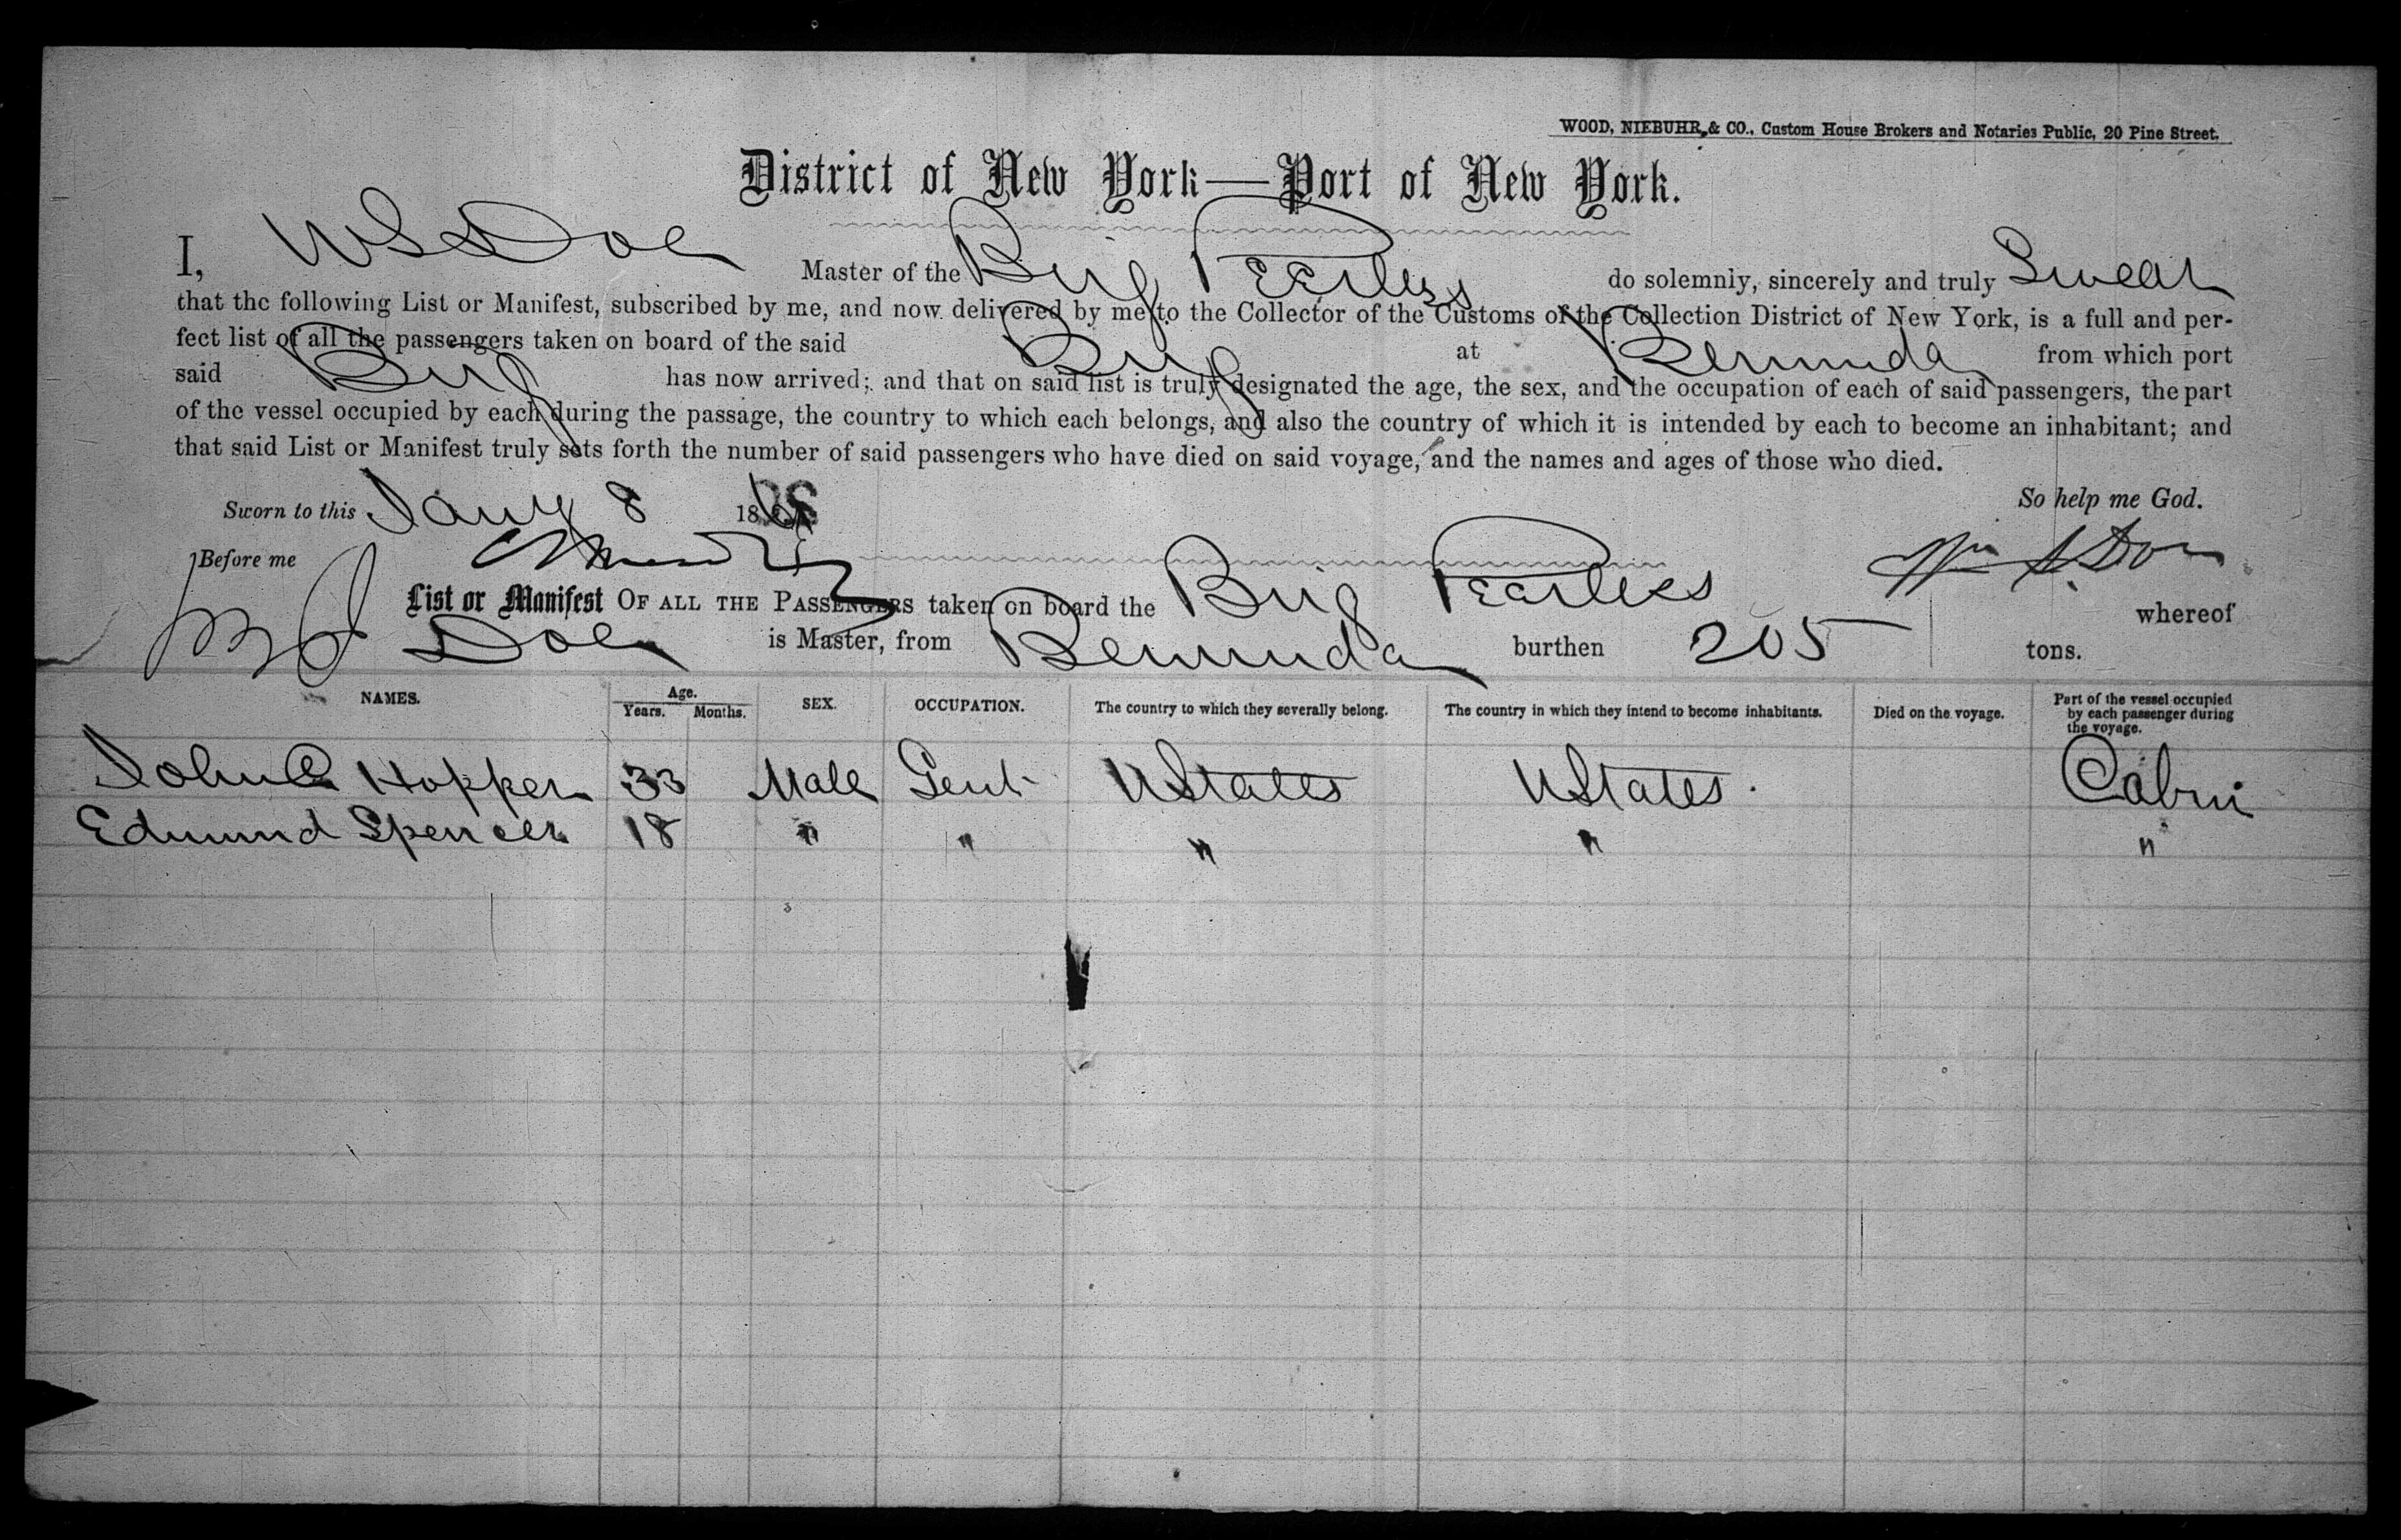 WOOD, NIEBUHR, & CO., Custom House Brokers and Notaries Public, 20 Pine Street.
District of New York—Port of New York.
I, W S Doe Master of the Brig Peerless do solemnly, sincerely and truly Swear
that the following List or Manifest, subscribed by me, and now delivered by me to the Collector of the Customs of the Collection District of New York, is a full and per-
fect list of all the passengers taken on board of the said Brig at Bermuda from which port
said Brig has now arrived; and that on said list is truly designated the age, the sex, and the occupation of each of said passengers, the part
of the vessel occupied by each during the passage, the country to which each belongs, and also the country of which it is intended by each to become an inhabitant; and
that said List or Manifest truly sets forth the number of said passengers who have died on said voyage, and the names and ages of those who died.
Sworn to this Jany 8 18 So help me God.
Before me Wm S. Doe
List or Manifest OF ALL THE PASSENGERS taken on board the Brig Peerless whereof
W S Doe is Master, from Bermuda burthen 205 tons.
NAMES. Age. Years. Months. SEX. OCCUPATION. The country to which they severally belong. The country in which they intend to become inhabitants. Died on the voyage. Part of the vessel occupied by each passenger during the voyage.
John C Hopper 33 Male Gent UStates UStates. Cabin
Edmund Spencer 18 " " " " "